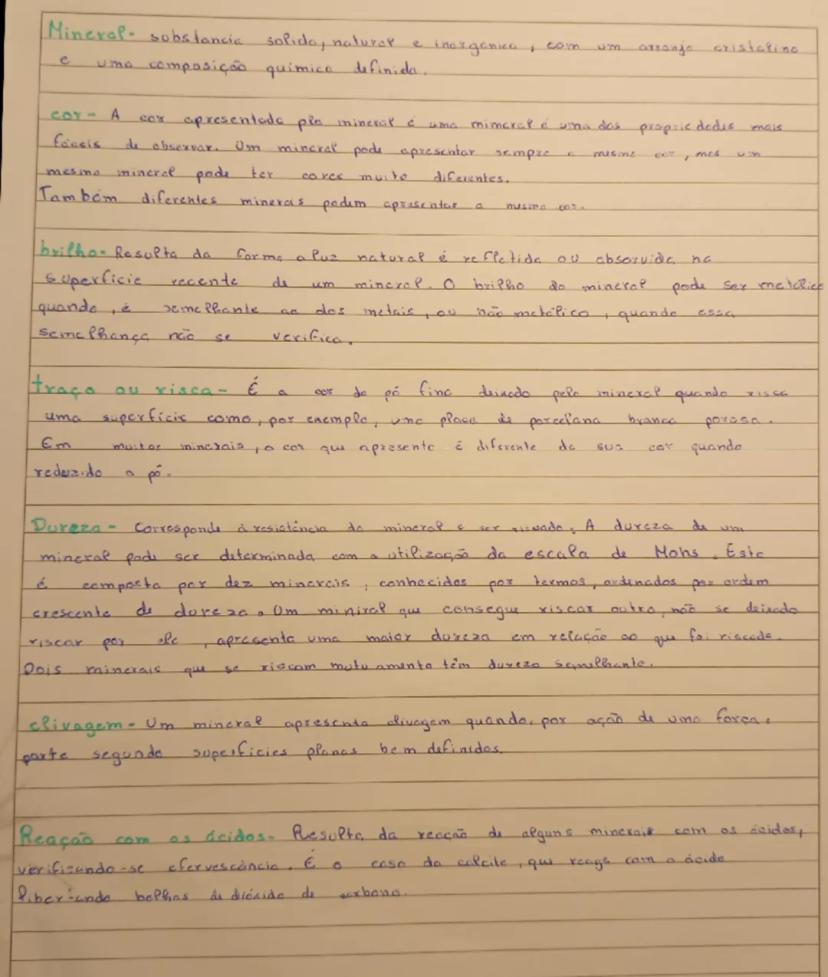 Mineral - substancia solida, natural e inorgânica, com um arranjo cristalino
e uma composição química definida.
cor - A cor apresentada plo mineral é uma mimeral é uma das propriedades mais
fáceis de observar. Um mineral pode apresentar sempre a mesma cor, mas um
mesmo mineral pode ter cores muito diferentes.
Também diferentes minerais podem apresentar a mesma cor.
brilho - Resulta da forma a luz natural é refletida ou absorvida na
superfície recente de um mineral. O brilho do mineral pode ser metálico
quando, é semelhante ao dos metais, ou não metálico, quando essa
semelhança não se verifica.
traço ou risca - É a cor do pó fino deixado pelo mineral quando risca
uma superfície como, por exemplo, uma placa de porcelana branca porosa.
Em muitos minerais, a cor que apresenta é diferente da sua cor quando
reduzido a pó.
Dureza - Corresponde à resistência do mineral a ser riscado. A dureza de um
mineral pode ser determinada com a utilização da escala de Mohs. Esta
é composta por dez minerais, conhecidos por termos, ordenados por ordem
crescente de dureza. Um miniral que consegue riscar outro, não se deixado
riscar por ele, apresenta uma maior dureza em relação ao que foi riscado.
Dois minerais que se riscam mutuamente têm dureza semelhante.
clivagem - Um mineral apresenta clivagem quando, por ação de uma força,
parte segundo superfícies planas bem definidas.
Reação com os ácidos - Resulta da reação de alguns minerais com os ácidos,
verificando-se efervescência. É o caso da calcite, que reage com o ácido
libertando bolhas de dióxido de carbono.